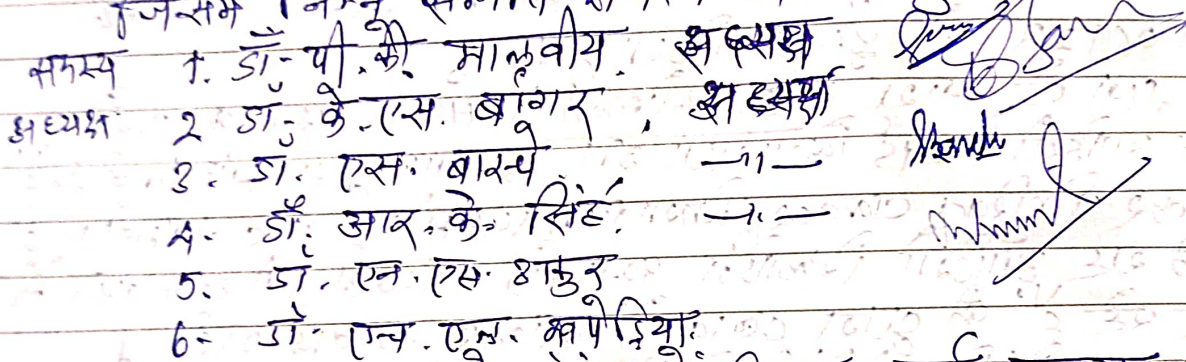 जिसमें निम्न
सदस्य 1. डॉ. पी. के. मालवीय. अध्यक्ष
अध्यक्ष 2 डॉ. के. एस. बांगर, अध्यक्ष
3. डॉ. एस. बारचे —11—
4. डॉ. आर. के. सिंह. —11—
5. डॉ. एन. एस. ठाकुर
6- डॉ. एच. एल. खपेड़िया